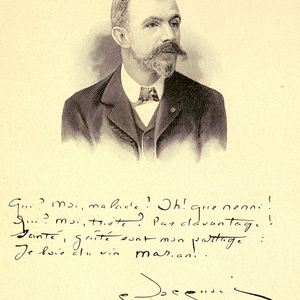 Qui? Moi, malade? Oh! que nenni!
Qui? moi, triste? Pas davantage!
Santé, gaîté sont mon partage:
Je bois du vin mariani.